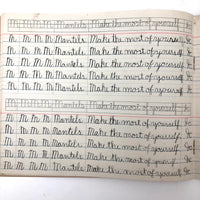 M M M M Mantels Make the most of yourself
M M M M Mantels. Make the most of yourself
M M M M Mantels. Make the most of yourself
M M M M Mantels. Make the most of yourself
M M M M Mantels. Make the most of yourself
M M M M Mantels. Make the most of yourself
M M M M Mantels Make the most of yourself
M M M M Mantels Make the most of yourself
M M M M Mantels. Make the most of yourself
M M M M Mantels. Make the most of yourself
M M M M Mantels. Make the most of yourself
M M M M Mantels. Make the most of yourself